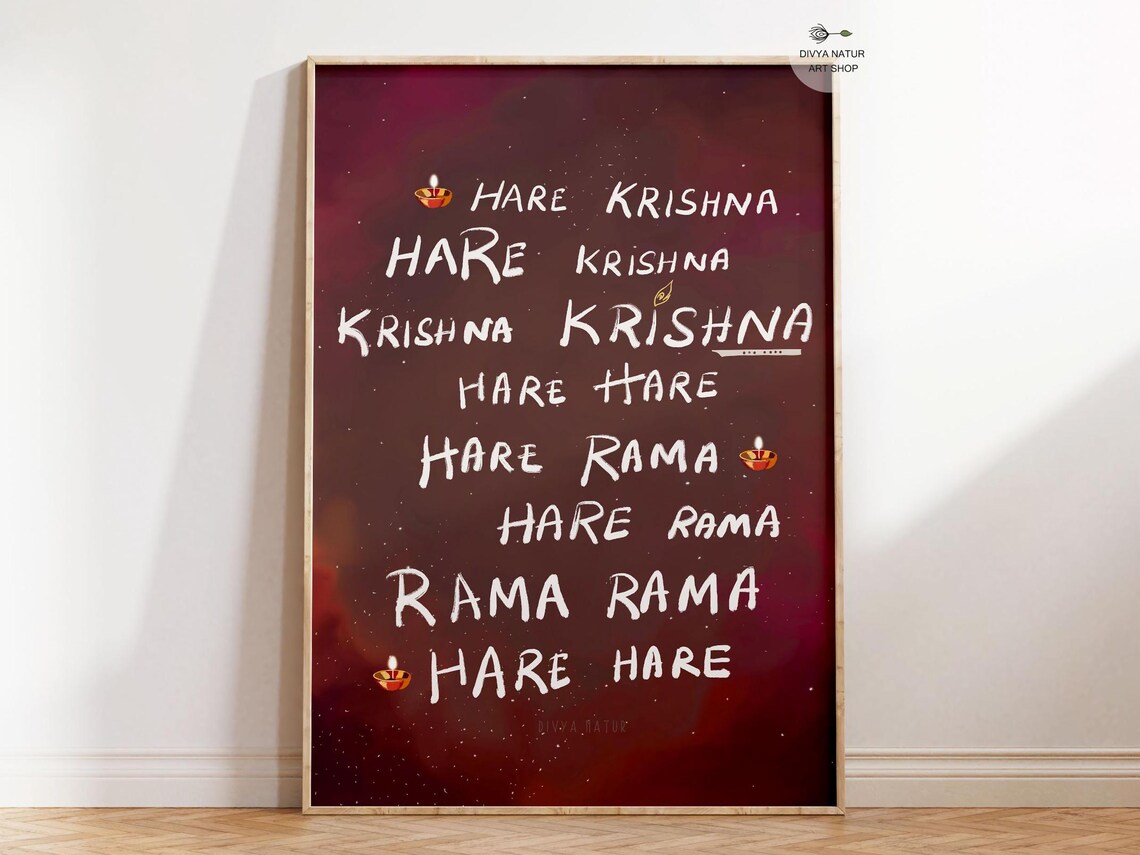 DIVYA NATUR
ART SHOP
HARE KRISHNA
HARE KRISHNA
KRISHNA KRISHNA
HARE HARE
HARE RAMA
HARE RAMA
RAMA RAMA
HARE HARE
DIVYA NATUR